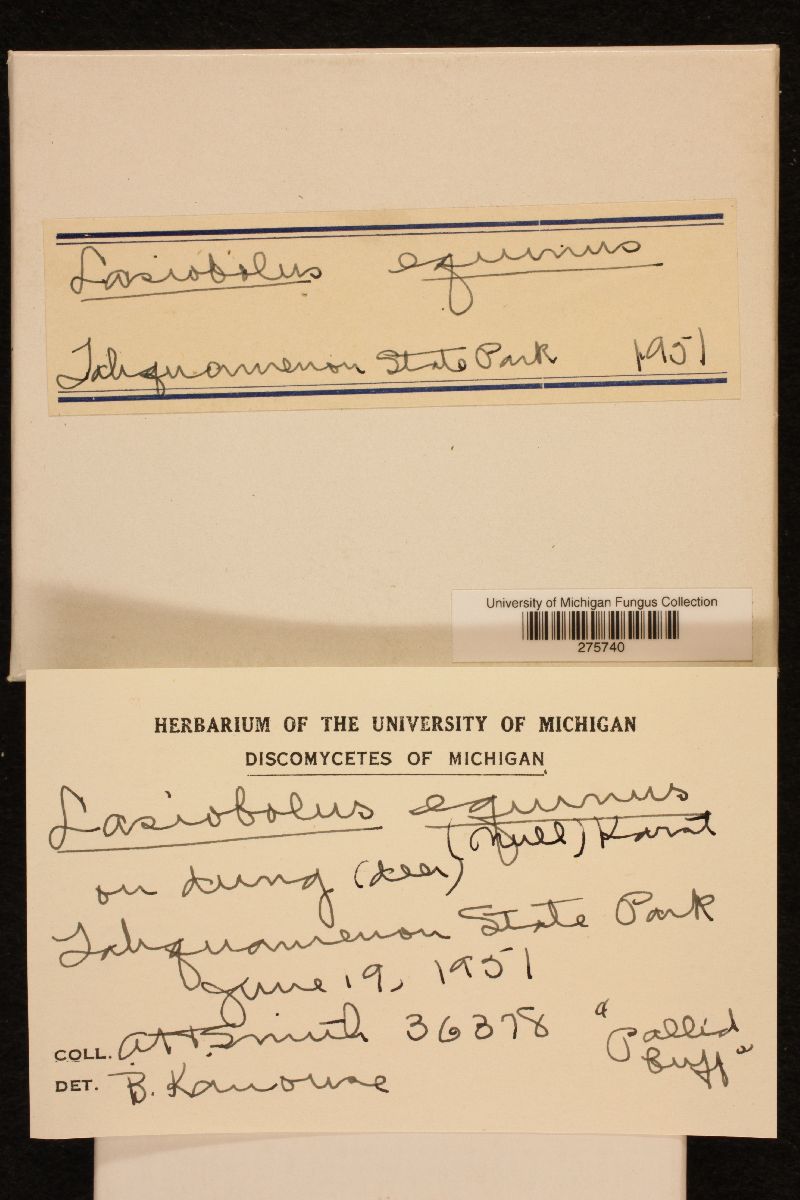 Lasiobolus equinus
Tahquamenon State Park 1951
University of Michigan Fungus Collection
275740
HERBARIUM OF THE UNIVERSITY OF MICHIGAN
DISCOMYCETES OF MICHIGAN
Lasiobolus equinus
(Müll) Karst
on dung (deer)
Tahquamenon State Park
June 19, 1951
COLL. AH Smith 36378 "Pallid
buff"
DET. B. Kanouse